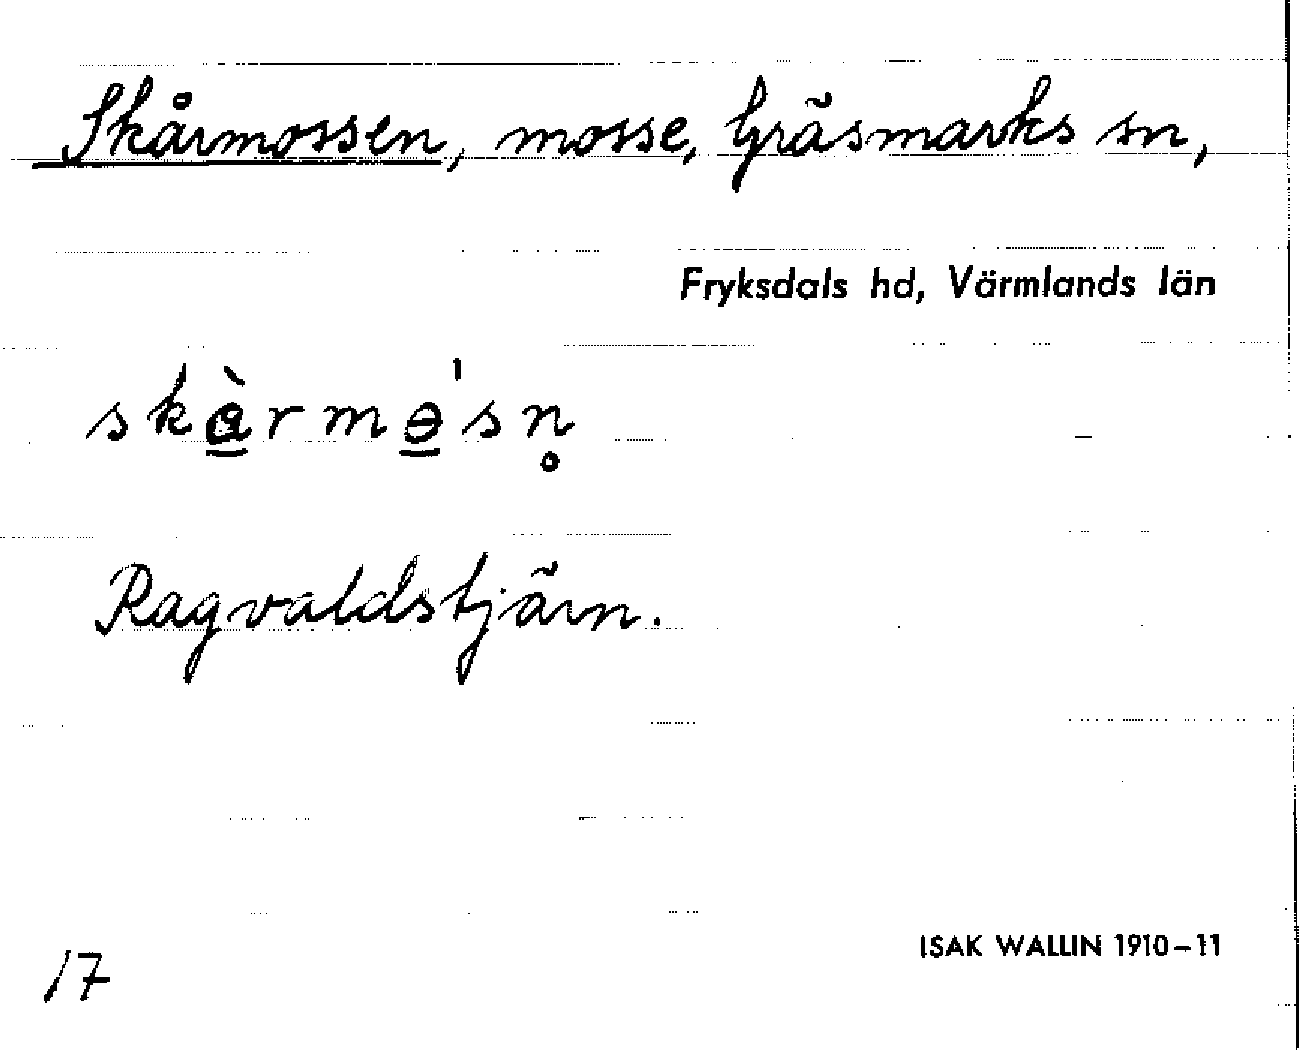 Skårmossen, mosse, Gräsmarks sn,
Fryksdals hd, Värmlands län
skàrmə̱'sn̥
Ragvaldstjärn.
17
ISAK WALLIN 1910-11